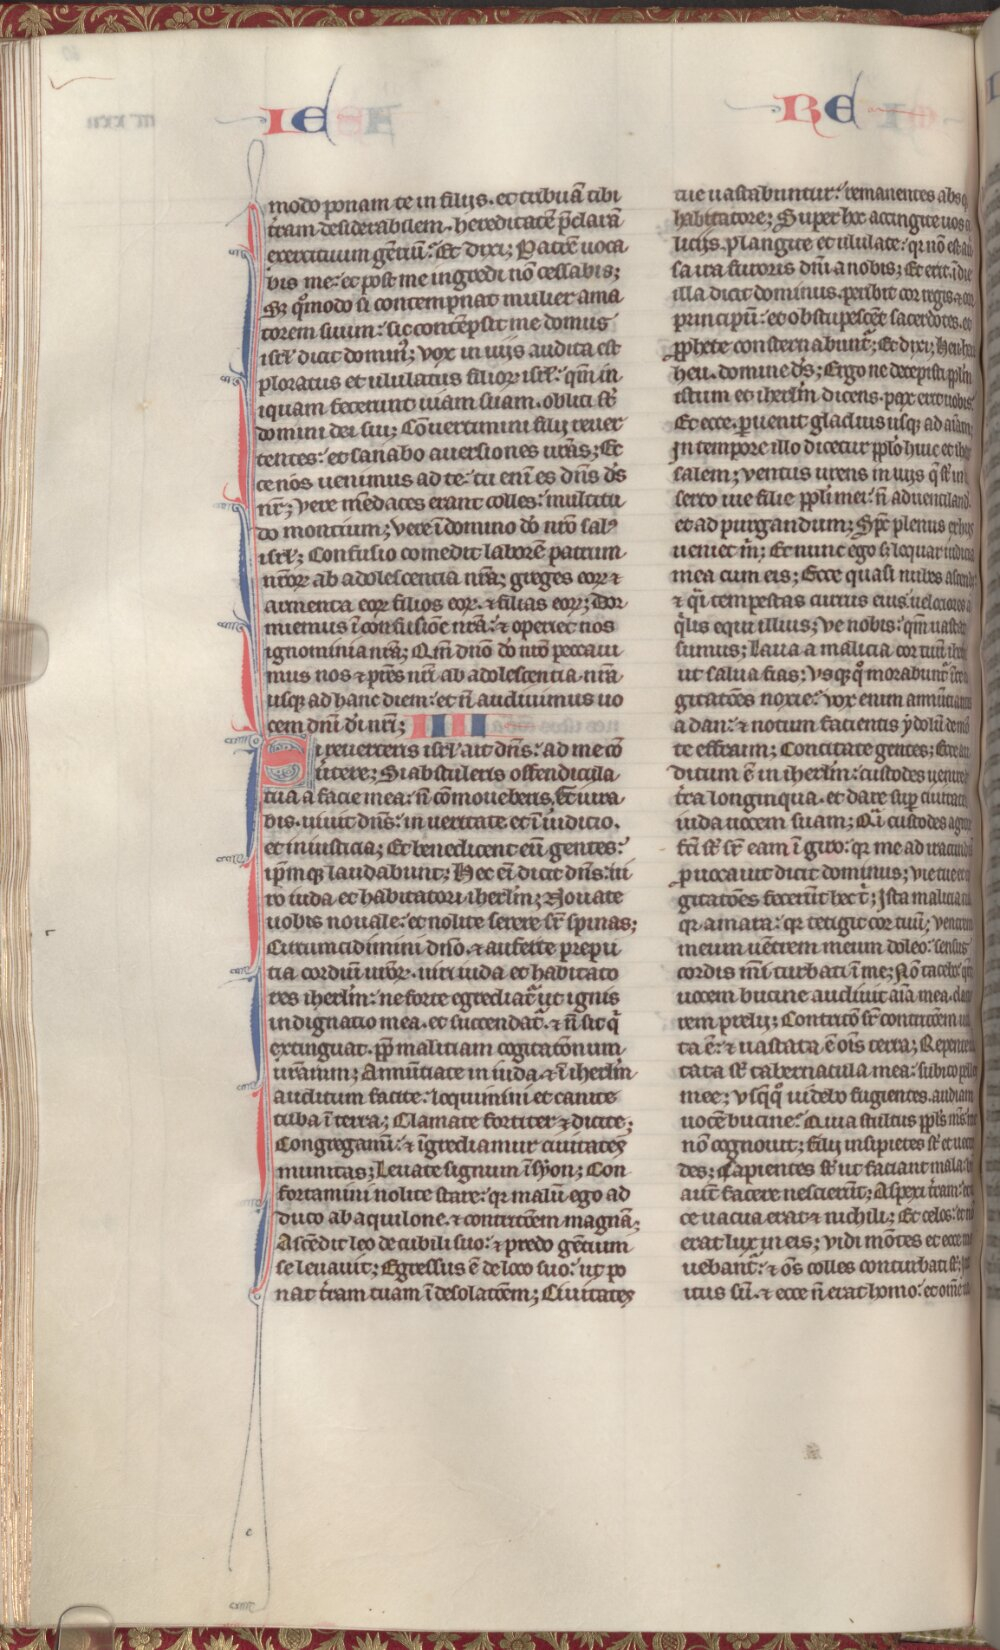 IE RE
modo ponam te in filijs. et tribuā tibi
t̄ram desiderabilem. hereditatē p̄clarā
exercituum gētiū. Et dixi; Patrē uoca
bis me: et post me ingredi nō cessabis;
Sꝫ q̄modo si contempnat mulier ama
torem suum: sic contēpsit me domus
isrl̄ dicit domin᷒; vox in uijs audita est
ploratus et ululatus filioꝝ isrl̄: qm̄ in
iquam fecerunt uiam suam. obliti s̄t
domini dei sui; Cōuertimini filij reuer
tentes: et sanabo auersiones ur̄as; Ec
ce nos uenimus ad te: tu enī es dn̄s d̄s
nr̄; vere mēdaces erant colles: multitu
do montium; vere ī domino dō nr̄o sal᷒
isrl̄; Confusio comedit laborē patrum
nr̄oꝝ ab adolescentia nr̄a; greges eoꝝ ⁊
armenta eoꝝ filios eoꝝ. ⁊ filias eoꝝ; Dor
miemus ī confusiōe nr̄a: ⁊ operiet nos
ignominia nr̄a; Qm̄ dn̄o dō nr̄o peccaui
mus nos ⁊ pr̄es nr̄i ab adolescentia nr̄a
usqꝫ ad hanc diem: et n̄ audiuimus uo
cem dn̄i di nr̄i; IIII
Si reuerteris isrl̄ ait dn̄s: ad me cō
u̓tere; Si abstuleris offendicula
tua a facie mea: n̄ cōmoueberis. Et iura
bis. uiuit dn̄s: in ueritate et ī iudicio.
et in iusticia; Et benedicent eū gentes:
ip̄mqꝫ laudabunt; Hec eī dicit dn̄s: ui
ro iuda et habitatori iherl̄m; Nouate
uobis nouale: et nolite serere sr̄ spinas;
Circumcidimini dn̄o. ⁊ auferte prepu
tia cordiū ur̄oꝝ. uiri iuda et habitato
res iherl̄m: ne forte egrediat᷑ ut ignis
indignatio mea. et succendat᷑. ⁊ n̄ sit q̄
extinguat. pp̄ malitiam cogitatōnum
ur̄arum; Annūtiate in iuda. ⁊ ī iherl̄m
auditum facite: loquimini et canite
tuba ī terra; Clamate fortiter ⁊ dicite;
Congregamī: ⁊ īgrediamur ciuitates
munitas; Leuate signum ī syon; Con
fortamini nolite stare: qꝛ malū ego ad
duco ab aquilone. ⁊ contritōem magnā;
Ascēdit leo de cubili suo: ⁊ predo gētium
se leuauit; Egressus ē de loco suo: ut po
nat t̄ram tuam ī desolatōem; Ciuitates
tue uastabuntur: remanentes absqꝫ
habitatore; Super hoc accingite uos
licijs. plangite et ululate: qꝛ nō est
sa ira furoris dn̄i a nobis; Et erit. ī die
illa dicit dominus. peribit cor regis. ⁊ cor
principū: et obstupescēt sacerdotes. et
pp̄hete consternabunt᷑; Et dixi; Heu heu
heu. domine d̄s; Ergo ne decepisti ppl̄m
istum et iherl̄m dicens. pax erit uobis:
Et ecce. peruenit gladius usqꝫ ad aīam;
In tempore illo dicetur ppl̄o huic et iheru
salem; ventus urens in uijs q̄ s̄t in
serto uie filie ppl̄i mei: n̄ ad uentilandū
et ad purgandum; Spc̄ plenus ex hijs
ueniet m̄; Et nunc ego sꝫ loquar iudicia
mea cum eis; Ecce quasi nubes ascendet
⁊ q̄i tempestas currus eius. uelociores
q̄lis equi illius; Ve nobis: qm̄ uastati
sumus; Laua a malicia cor tuū iherl̄m
ut salua fias; Usqꝫ q̄ morabunt᷑ ī te
gitatōes noxie: vox enim annūtiantis
a dan: ⁊ notum facientis ydolū de mō
te effraim; Concitate gentes; ecce au
ditum ē in iherl̄m: custodes uenire
t̄ra longinqua. et dare sup̄ ciuitates
iuda uocem suam; Q̄i custodes agrorū
fc̄i s̄t sr̄ eam ī giro: qꝛ me ad iracundiā
ꝓuocauit dicit dominus; vie tue et co
gitatōes fecerūt hec t̄; Ista malicia tua
qꝛ amara: qꝛ tetigit cor tuū; ventrem
meum uētrem meum doleo: sensus
cordis mei turbati ī me; Nō tacebo: qm̄
uocem bucine audiuit aīa mea. clamo
rem prelij; Contritō sr̄ contritōem uo
ta ē: ⁊ uastata ē om̄s terra; Repente
tata s̄t tabernacula mea: subito pelles
mee; Usq̄q̄ uidebo fugientes. audiam
uocē bucine: Quia stultus ppl̄s m̄s. me
nō cognouit; filij insipiētes s̄t et uecor
des; Sapientes s̄t ut faciant mala: b̄n
aut̄ facere nescierūt; Aspexi t̄ram: et ec
ce uacua erat ⁊ nichili; Et celos: et nō
erat lux in eis; vidi mōtes et ecce mo
uebant᷑: ⁊ om̄s colles conturbati s̄t; In
itus sū. ⁊ ecce n̄ erat homo: et om̄e